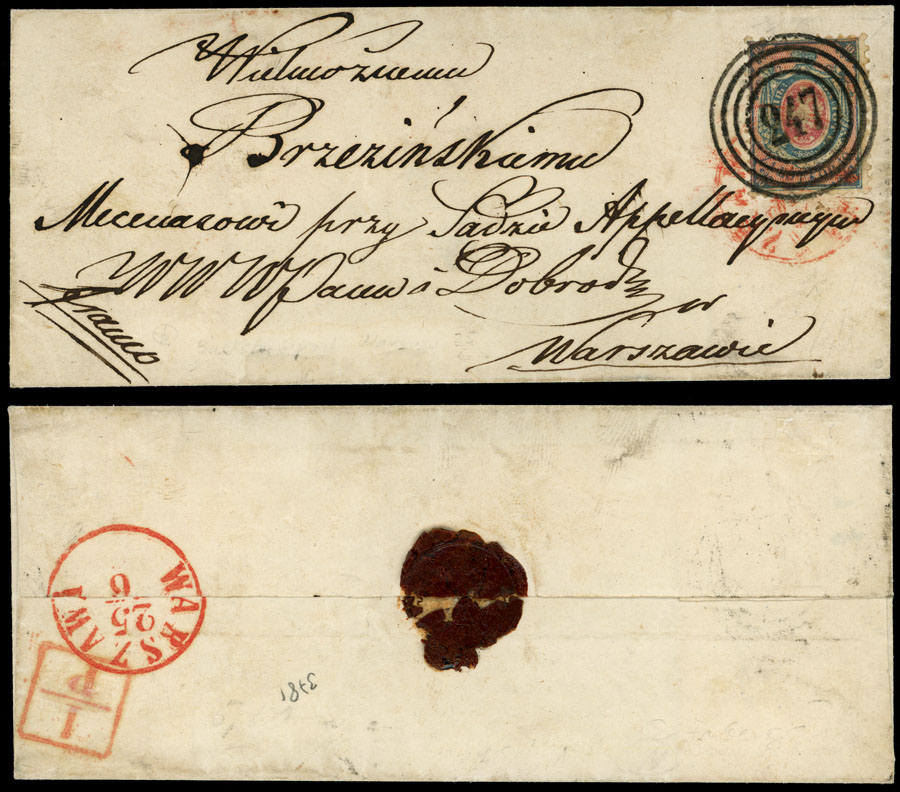 Wielmożnemu
Brzezińskiemu
Mecenasowi przy Sądzie Appellacyjnym
WWWPanu i Dobrodz
w
Warszawie
franco
247
WARSZAWA
25
6
I
P